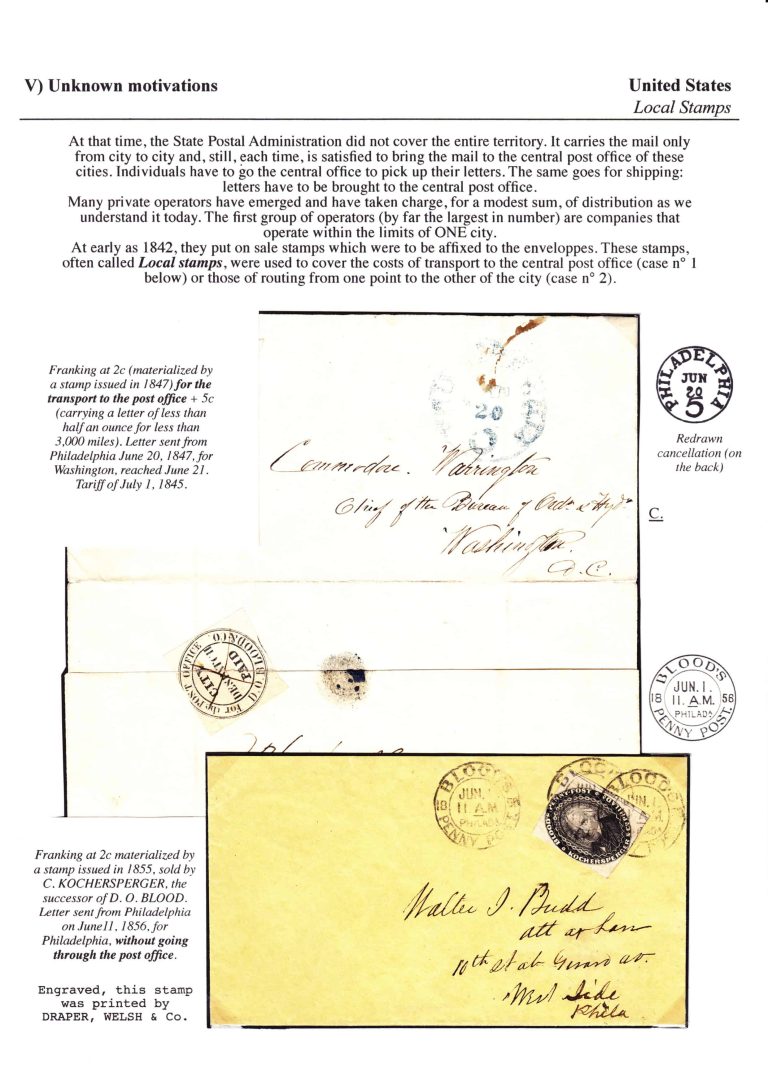 V) Unknown motivations
United States
Local Stamps
At that time, the State Postal Administration did not cover the entire territory. It carries the mail only
from city to city and, still, each time, is satisfied to bring the mail to the central post office of these
cities. Individuals have to go the central office to pick up their letters. The same goes for shipping:
letters have to be brought to the central post office.
Many private operators have emerged and have taken charge, for a modest sum, of distribution as we
understand it today. The first group of operators (by far the largest in number) are companies that
operate within the limits of ONE city.
At early as 1842, they put on sale stamps which were to be affixed to the enveloppes. These stamps,
often called Local stamps, were used to cover the costs of transport to the central post office (case n° 1
below) or those of routing from one point to the other of the city (case n° 2).
Franking at 2c (materialized by
a stamp issued in 1847) for the
transport to the post office + 5c
(carrying a letter of less than
half an ounce for less than
3,000 miles). Letter sent from
Philadelphia June 20, 1847, for
Washington, reached June 21.
Tariff of July 1, 1845.
20
5
Commodore. Warrington
Chief of the Bureau of Ord. & Hyd.
Washington.
D.C.
PHILADELPHIA
JUN
20
5
Redrawn
cancellation (on
the back)
C.
D.O. BLOOD & CO
CITY
DESPATCH
PAID
For the POST OFFICE
BLOOD'S
18 JUN. 1. 56
11 A.M.
PHILADA
PENNY POST.
BLOOD'S
18 JUN. 1 56
11 A.M
PHILADA
PENNY POST
BLOOD'S PENNY POST
KOCHERSPERGER
Walter J. Budd
att at Law
10th st ab Girard av.
West Side
Phila
Franking at 2c materialized by
a stamp issued in 1855, sold by
C. KOCHERSPERGER, the
successor of D. O. BLOOD.
Letter sent from Philadelphia
on June11, 1856, for
Philadelphia, without going
through the post office.
Engraved, this stamp
was printed by
DRAPER, WELSH & Co.